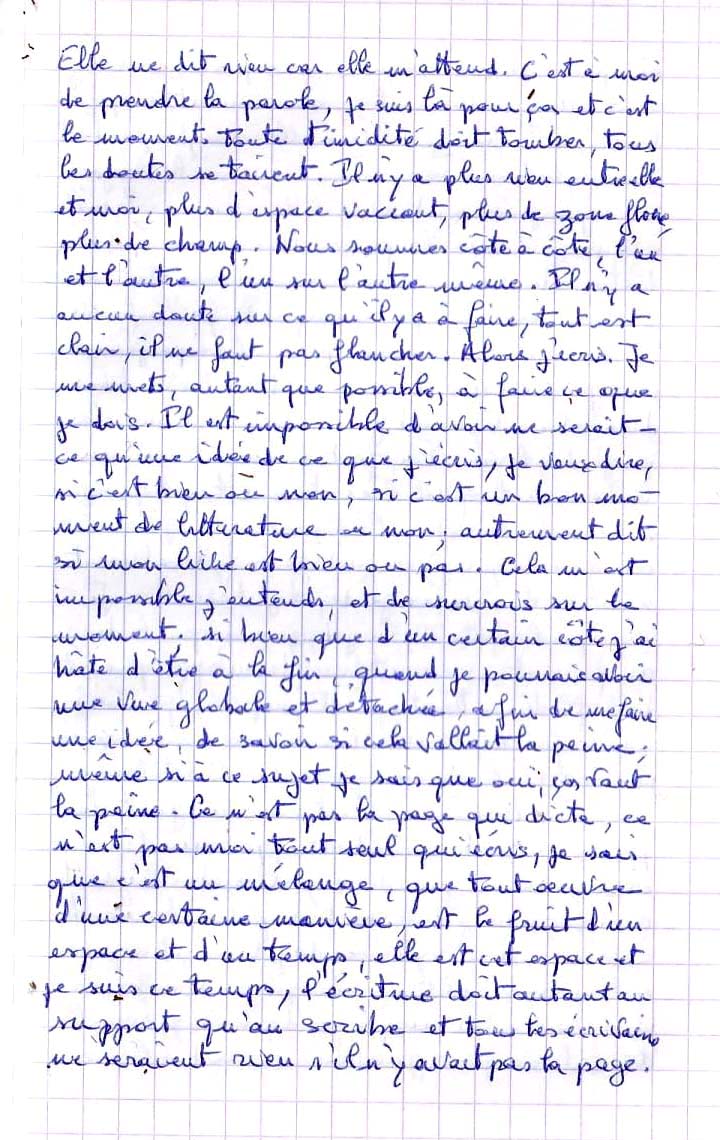 Elle ne dit rien car elle m'attend. C'est à moi
de prendre la parole, je suis là pour ça et c'est
le moment. Toute timidité doit tomber, tous
les doutes se taisent. Il n'y a plus rien entre elle
et moi, plus d'espace vaccant, plus de zone floue,
plus de champ. Nous sommes côte à côte, l'un
et l'autre, l'un sur l'autre même. Il n'y a
aucun doute sur ce qu'il y a à faire, tout est
clair, il ne faut pas flancher. Alors j'écris. Je
me mets, autant que possible, à faire ce que
je dois. Il est impossible d'avoir ne serait-
ce qu'une idée de ce que j'écris, je veux dire,
si c'est bien ou non, si c'est un bon mo-
ment de litterature ou non; autrement dit
si mon est bien ou pas. Cela m'est
impossible j'entends, et de surcrois sur le
moment. Si bien que d'un certain côté j'ai
hâte d'être à la fin, quand je pourrais avoir
une vue globale et détachée, afin de me faire
une idée, de savoir si cela vallait la peine;
même si à ce sujet je sais que oui, ça vaut
la peine. Ce n'est pas la page qui dicte, ce
n'est pas moi tout seul qui écris, je sais
que c'est un mélange, que tout oeuvre
d'une certaine manière, est le fruit d'un
espace et d'un temps, elle est cet espace et
je suis ce temps, l'écriture doit autant au
support qu'au scribe et tous les écrivains
ne seraient rien s'il n'y avait pas la page.